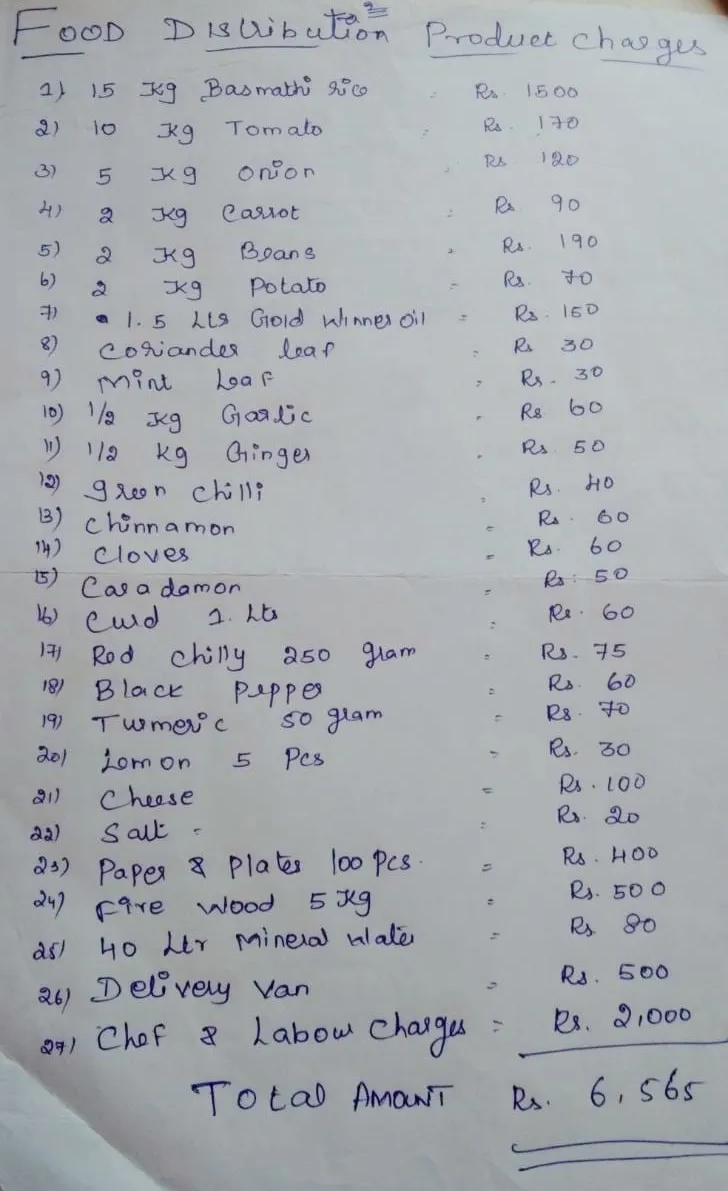 Food Distribution Product Charges
1) 15 Kg Basmathi rice : Rs. 1500
2) 10 Kg Tomato : Rs. 170
3) 5 Kg Onion . Rs 120
4) 2 Kg Carrot : Rs 90
5) 2 Kg Beans . Rs. 190
6) 2 Kg Potato = Rs. 70
7) 1.5 Lts Gold Winner oil = Rs. 150
8) Coriander leaf : Rs 30
9) Mint Leaf : Rs. 30
10) 1/2 Kg Garlic . Rs 60
11) 1/2 kg Ginger . Rs. 50
12) green chilli : Rs. 40
13) Chinnamon = Rs. 60
14) Cloves = Rs. 60
15) Caradamon : Rs: 50
16) Curd 1. Lts : Rs. 60
17) Red chilly 250 gram : Rs. 75
18) Black Pepper : Rs. 60
19) Turmeric 50 gram = Rs. 70
20) Lemon 5 Pcs = Rs. 30
21) Cheese = Rs. 100
22) Salt = : Rs. 20
23) Paper & Plates 100 pcs. = Rs. 400
24) Fire wood 5 Kg : Rs. 500
25) 40 Ltr Mineral Water = Rs 80
26) Delivery Van = Rs. 500
27) Chef & Labour Charges = Rs. 2,000
Total Amount Rs. 6,565